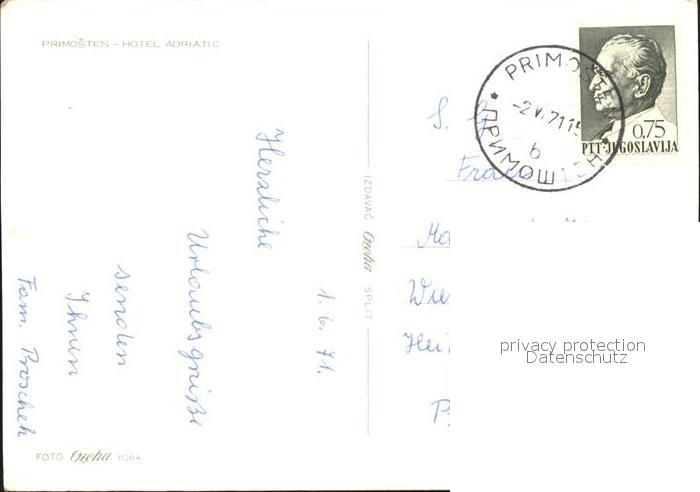 PRIMOŠTEN - HOTEL ADRIATIC
1. 6. 71.
Herzliche
Urlaubsgrüße
senden
Ihnen
Fam. Proschek
FOTO Ozeha 8264
IZDAVAČ Ozeha SPLIT
PRIMOŠTEN
-2 VI 71 15
b
ПРИМОШТЕН
0,75
PTT-JUGOSLAVIJA
S. g.
Frau
privacy protection
Datenschutz